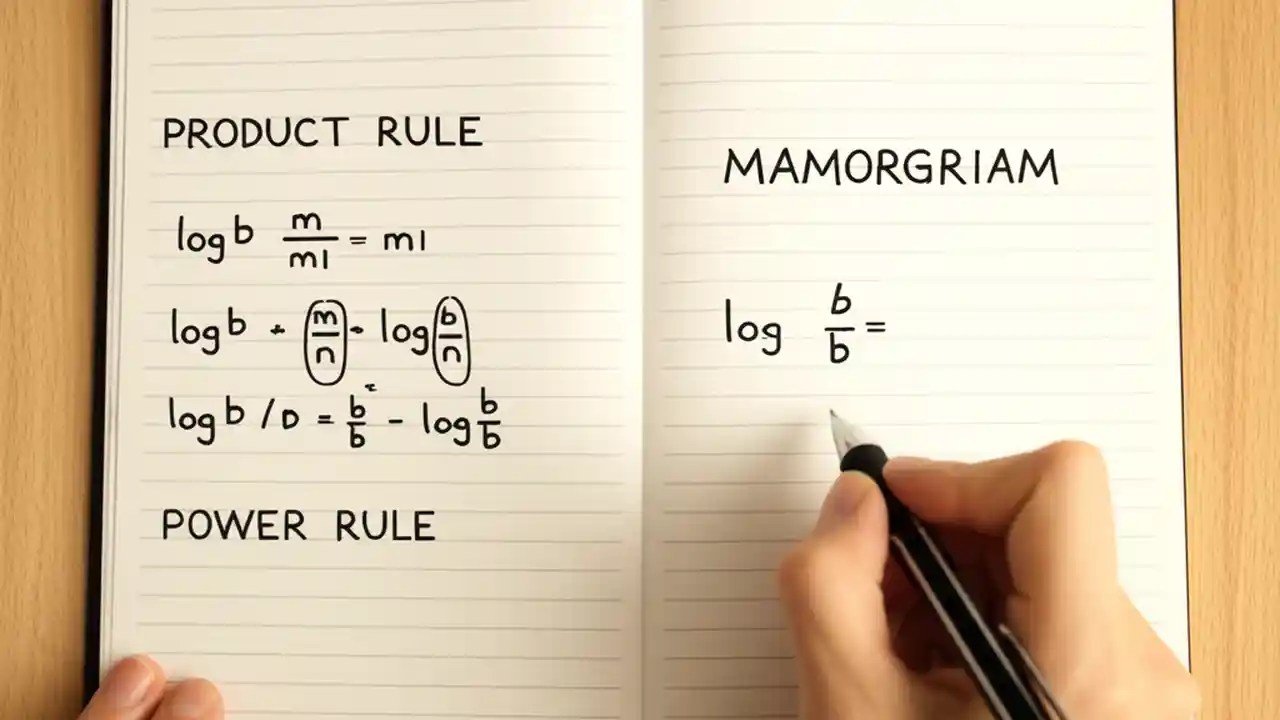 PRODUCT RULE
log b m/m1 = m1
log b + (m/n) - log (b/n)
log b / D = b/b - log b/b
POWER RULE
MAMORGRIAM
log b/b =